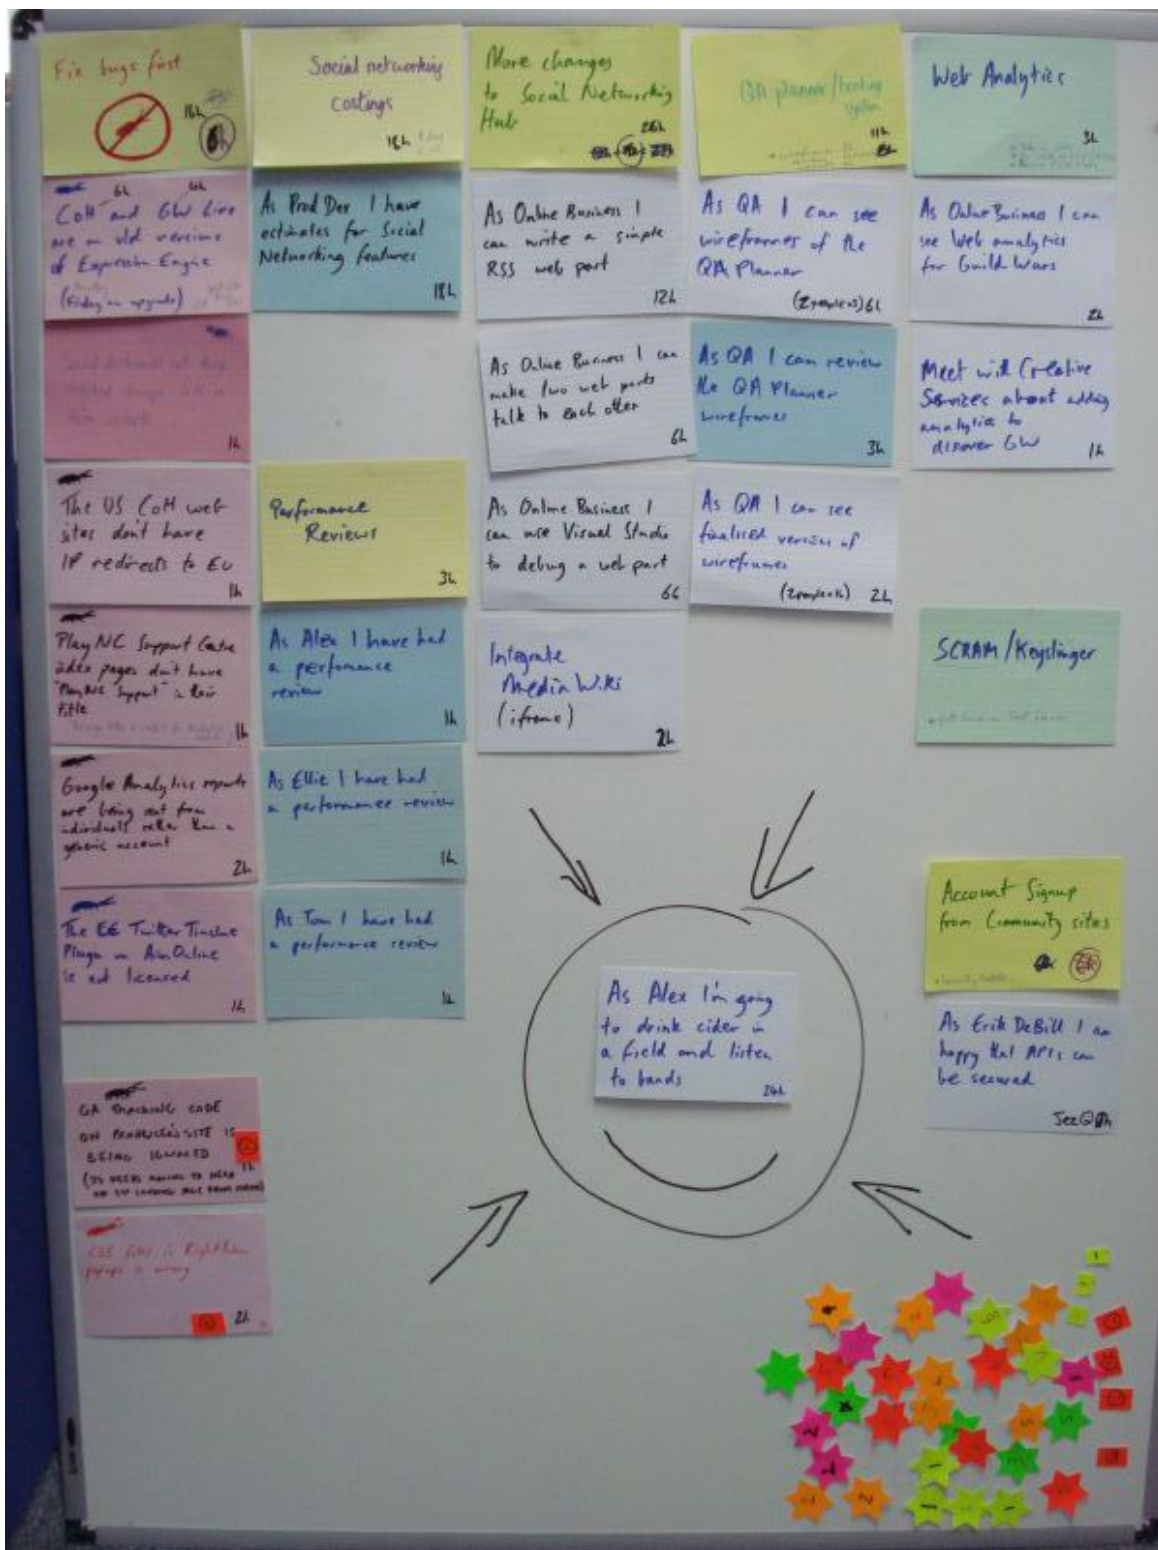 Fix bugs first
16h
6h
CoH and GW Live
are on old versions
of Expression Engine
(Friday on upgrade)
6h 4h
1h
The US CoH web
sites don't have
IP redirects to EU
1h
PlayNC Support Centre
index pages don't have
"PlayNC Support" in their
title
1h
Google Analytics reports
are being sent from
individuals rather than a
generic account
2h
The EE Twitter Timeline
Plugin on AionOnline
is not licensed
1h
GA TRACKING CODE
ON
SITE IS
BEING IGNORED
1h
2h
Social networking
costings
18h
As Prod Dev I have
estimates for Social
Networking features
18h
Performance
Reviews
3h
As Alex I have had
a perfomance
review
1h
As Ellie I have had
a performance review
1h
As Tom I have had
a performance review
1h
More changes
to Social Networking
Hub
26h
As Online Business I
can write a simple
RSS web part
12h
As Online Business I can
make two web parts
talk to each other
6h
As Online Business I
can use Visual Studio
to debug a web part
6h
Integrate
Media Wiki
(iframe)
2h
QA planner/booking
system
11h
As QA I can see
wireframes of the
QA Planner
6h
As QA I can review
the QA Planner
wireframes
3h
As QA I can see
finalised version of
wireframes
2h
Web Analytics
3h
As Online Business I can
see Web analytics
for Guild Wars
2h
Meet with Creative
Services about adding
analytics to
discover GW
1h
SCRAM/Keyslinger
Account Signup
from Community sites
As Erik DeBill I am
happy that APIs can
be secured
As Alex I'm going
to drink cider in
a field and listen
to bands
24h